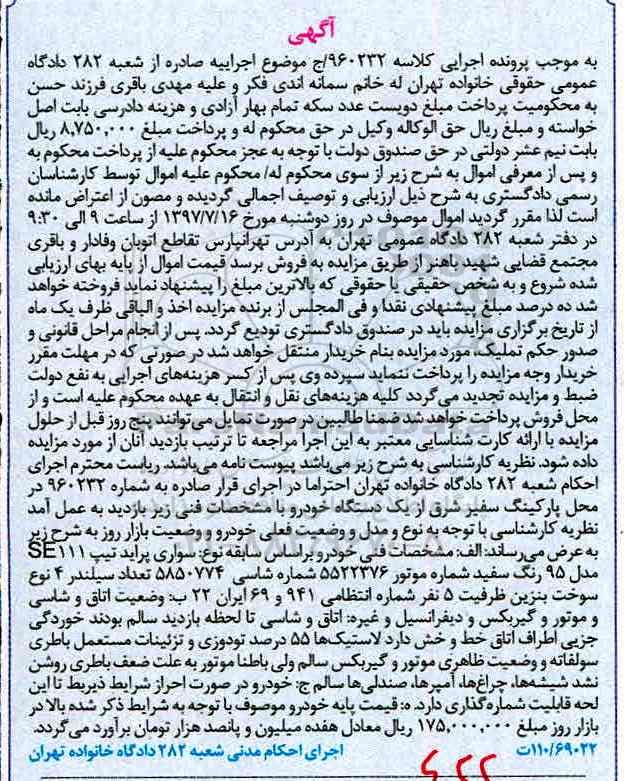 آگهی
به موجب پرونده اجرایی کلاسه ۹۶۰۲۳۲/ج موضوع اجراییه صادره از شعبه ۲۸۲ دادگاه
عمومی حقوقی خانواده تهران له خانم سمانه اندی فکر و علیه مهدی باقری فرزند حسن
به محکومیت پرداخت مبلغ دویست عدد سکه تمام بهار آزادی و هزینه دادرسی بابت اصل
خواسته و مبلغ ریال حق الوکاله وکیل در حق محکوم له و پرداخت مبلغ ۸,۷۵۰,۰۰۰ ریال
بابت نیم عشر دولتی در حق صندوق دولت با توجه به عجز محکوم علیه از پرداخت محکوم به
و پس از معرفی اموال به شرح زیر از سوی محکوم له/ محکوم علیه اموال توسط کارشناسان
رسمی دادگستری به شرح ذیل ارزیابی و توصیف اجمالی گردیده و مصون از اعتراض مانده
است لذا مقرر گردید اموال موصوف در روز دوشنبه مورخ ۱۳۹۷/۷/۱۶ از ساعت ۹ الی ۹:۳۰
در دفتر شعبه ۲۸۲ دادگاه عمومی تهران به آدرس تهرانپارس تقاطع اتوبان وفادار و باقری
مجتمع قضایی شهید باهنر از طریق مزایده به فروش برسد قیمت اموال از پایه بهای ارزیابی
شده شروع و به شخص حقیقی یا حقوقی که بالاترین مبلغ را پیشنهاد نماید فروخته خواهد
شد ده درصد مبلغ پیشنهادی نقدا و فی المجلس از برنده مزایده اخذ و الباقی ظرف یک ماه
از تاریخ برگزاری مزایده باید در صندوق دادگستری تودیع گردد. پس از انجام مراحل قانونی و
صدور حکم تملیک، مورد مزایده بنام خریدار منتقل خواهد شد در صورتی که در مهلت مقرر
خریدار وجه مزایده را پرداخت ننماید سپرده وی پس از کسر هزینه‌های اجرایی به نفع دولت
ضبط و مزایده تجدید می‌گردد کلیه هزینه‌های نقل و انتقال به عهده محکوم علیه است و از
محل فروش پرداخت خواهد شد ضمنا طالبین در صورت تمایل می‌توانند پنج روز قبل از حلول
مزایده با ارائه کارت شناسایی معتبر به این اجرا مراجعه تا ترتیب بازدید آنان از مورد مزایده
داده شود. نظریه کارشناسی به شرح زیر می‌باشد پیوست نامه می‌باشد. ریاست محترم اجرای
احکام شعبه ۲۸۲ دادگاه خانواده تهران احتراما در اجرای قرار صادره به شماره ۹۶۰۲۳۲ در
محل پارکینگ سفیر شرق از یک دستگاه خودرو با مشخصات فنی زیر بازدید به عمل آمد
نظریه کارشناسی با توجه به نوع و مدل و وضعیت فعلی خودرو و وضعیت بازار روز به شرح زیر
به عرض می‌رساند: الف: مشخصات فنی خودرو براساس سابقه نوع: سواری پراید تیپ SE۱۱۱
مدل ۹۵ رنگ سفید شماره موتور ۵۵۲۲۳۷۶ شماره شاسی ۵۸۵۰۷۷۴ تعداد سیلندر ۴ نوع
سوخت بنزین ظرفیت ۵ نفر شماره انتظامی ۹۴۱ و ۶۹ ایران ۲۲ ب: وضعیت اتاق و شاسی
و موتور و گیربکس و دیفرانسیل و غیره: اتاق و شاسی تا لحظه بازدید سالم بودند خوردگی
جزیی اطراف اتاق خط و خش دارد لاستیک‌ها ۵۵ درصد تودوزی و تزئینات مستعمل باطری
سولفاته و وضعیت ظاهری موتور و گیربکس سالم ولی باطنا موتور به علت ضعف باطری روشن
نشد شیشه‌ها، چراغ‌ها، آمپرها، صندلی‌ها سالم ج: خودرو در صورت احراز شرایط ذیربط تا این
لحه قابلیت شماره‌گذاری دارد. ه: قیمت پایه خودرو موصوف با توجه به شرایط ذکر شده بالا در
بازار روز مبلغ ۱۷۵,۰۰۰,۰۰۰ ریال معادل هفده میلیون و پانصد هزار تومان برآورد می‌گردد.
۱۱۰/۶۹۰۲۲ت اجرای احکام مدنی شعبه ۲۸۲ دادگاه خانواده تهران